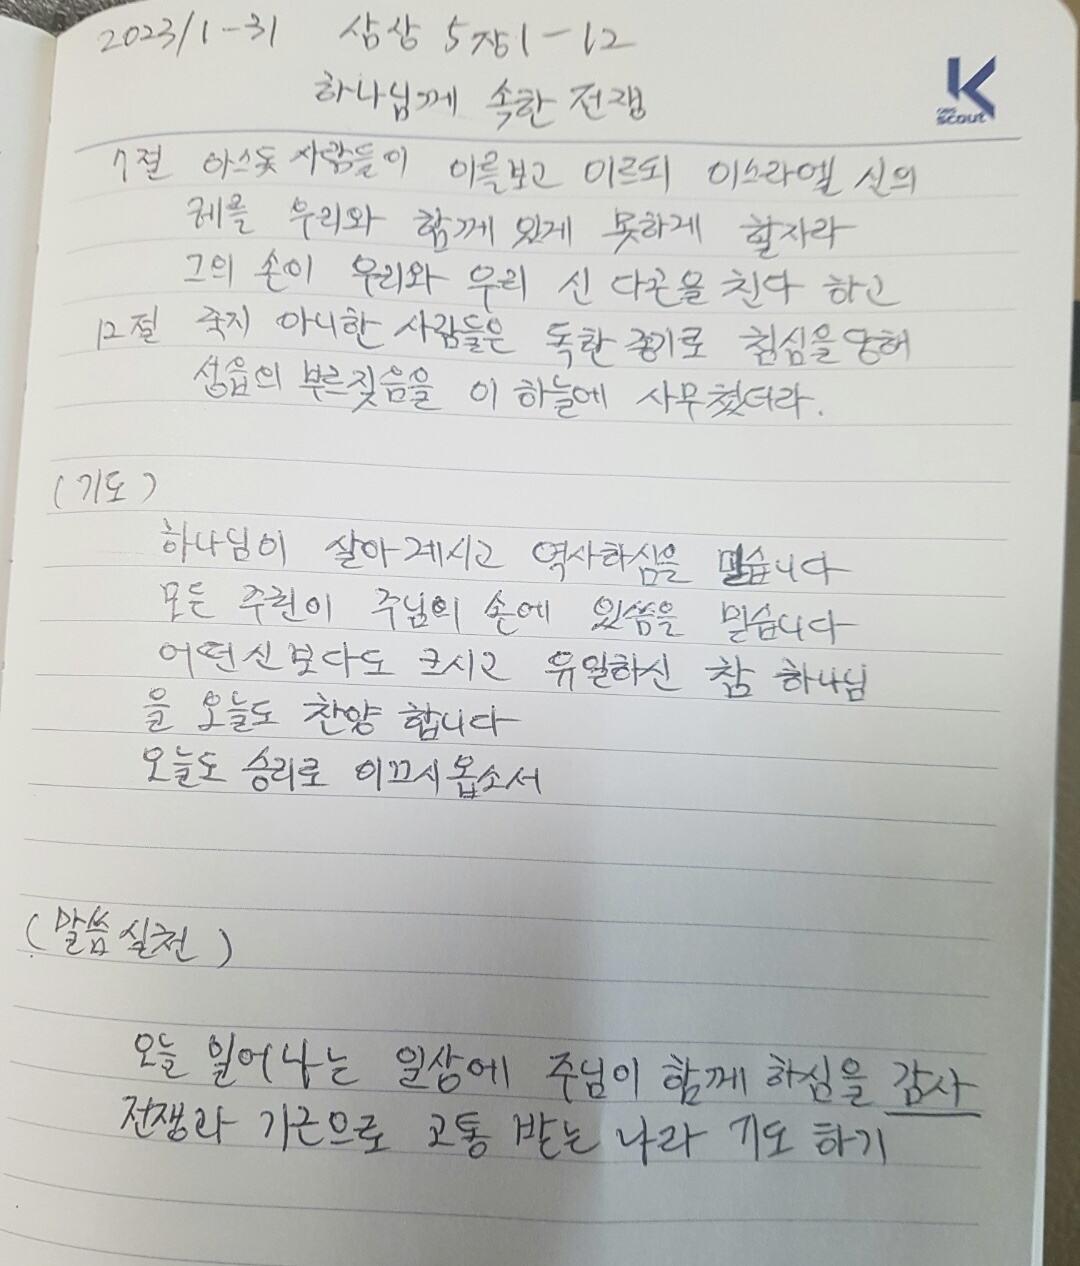 2023/1-31 삼상 5장1-12
하나님께 속한 전쟁
scout
7절 아스돗 사람들이 이를보고 이르되 이스라엘 신의
궤를 우리와 함께 있게 못하게 할지라
그의 손이 우리와 우리 신 다곤을 친다 하고
12절 죽지 아니한 사람들은 독한 종기로 침심을 당해
성읍의 부르짖음을 이 하늘에 사무쳤더라.
(기도)
하나님이 살아계시고 역사하심을 믿습니다
모든 주권이 주님의 손에 있씀을 믿습니다
어떤신보다도 크시고 유일하신 참 하나님
을 오늘도 찬양 합니다
오늘도 승리로 이끄시옵소서
(말씀실천)
오늘 일어나는 일상에 주님이 함께 하심을 감사
전쟁과 기근으로 고통 받는 나라 기도 하기